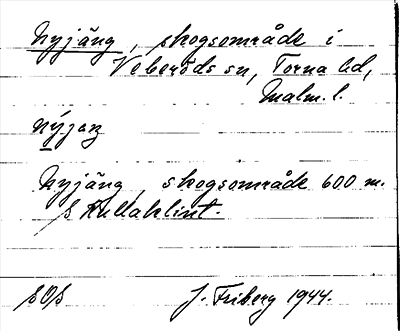 Nyjäng, skogsområde i
Veberöds sn, Torna hd,
Malm. l.
nýjaŋ
Nyjäng, skogsområde 600 m.
S Kullaklint.
SOS J. Friberg 1944.